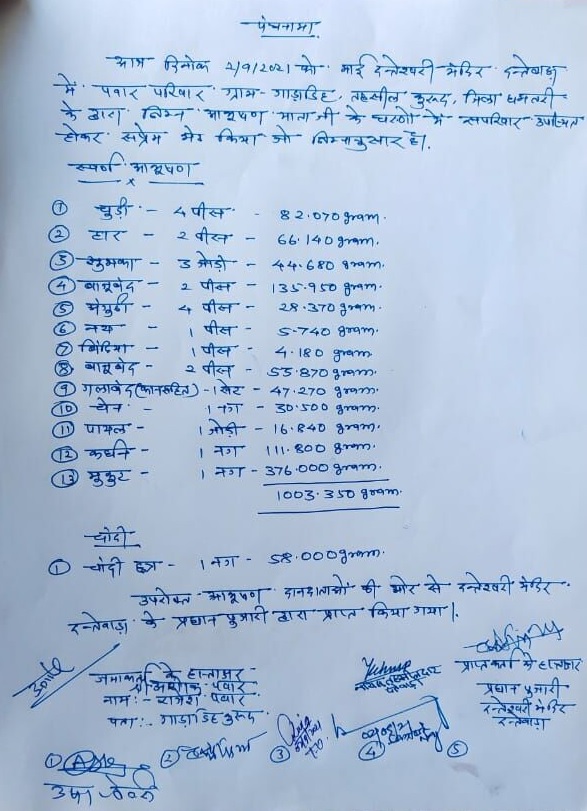 पंचनामा
आज दिनांक 2/9/2021 को माई दन्तेश्वरी मंदिर दन्तेवाड़ा
में पवार परिवार ग्राम-गाड़ाडिह, तहसील कुरूद, जिला धमतरी
के द्वारा निम्न आभूषण माताजी के चरणों में सपरिवार उपस्थित
होकर सप्रेम भेंट किया जो निम्नानुसार है।
स्वर्ण आभूषण
① चुड़ी :- 4 पीस - 82.070 gram.
② हार - 2 पीस - 66.140 gram.
③ झुमका - 3 जोड़ी - 44.680 gram.
④ बाजूबंद - 2 पीस - 135.950 gram.
⑤ अंगुठी - 4 पीस - 28.370 gram.
⑥ नथ - 1 पीस - 5.740 gram.
⑦ बिंदिया - 1 पीस - 4.180 gram.
⑧ बाजूबंद - 2 पीस - 53.870 gram.
⑨ गलाबंद (कानसहित) - 1 सेट - 47.270 gram.
⑩ चेन - 1 नग - 30.500 gram.
⑪ पायल - 1 जोड़ी - 16.840 gram.
⑫ कर्धन - 1 नग - 111.800 gram.
⑬ मुकुट - 1 नग - 376.000 gram.
1003.350 gram.
चांदी
① चांदी छत्र - 1 नग - 58.000 gram.
उपरोक्त आभूषण दानदाताओं की ओर से दन्तेश्वरी मंदिर
दन्तेवाड़ा के प्रधान पुजारी द्वारा प्राप्त किया गया।
जमाकर्ता के हस्ताक्षर -
श्री अशोक पवार
नाम :- राजेश पवार
पता :- गाड़ाडिह कुरूद
प्राप्तकर्ता के हस्ताक्षर
प्रधान पुजारी
दन्तेश्वरी मंदिर
दन्तेवाड़ा
① ② ③ ④ ⑤